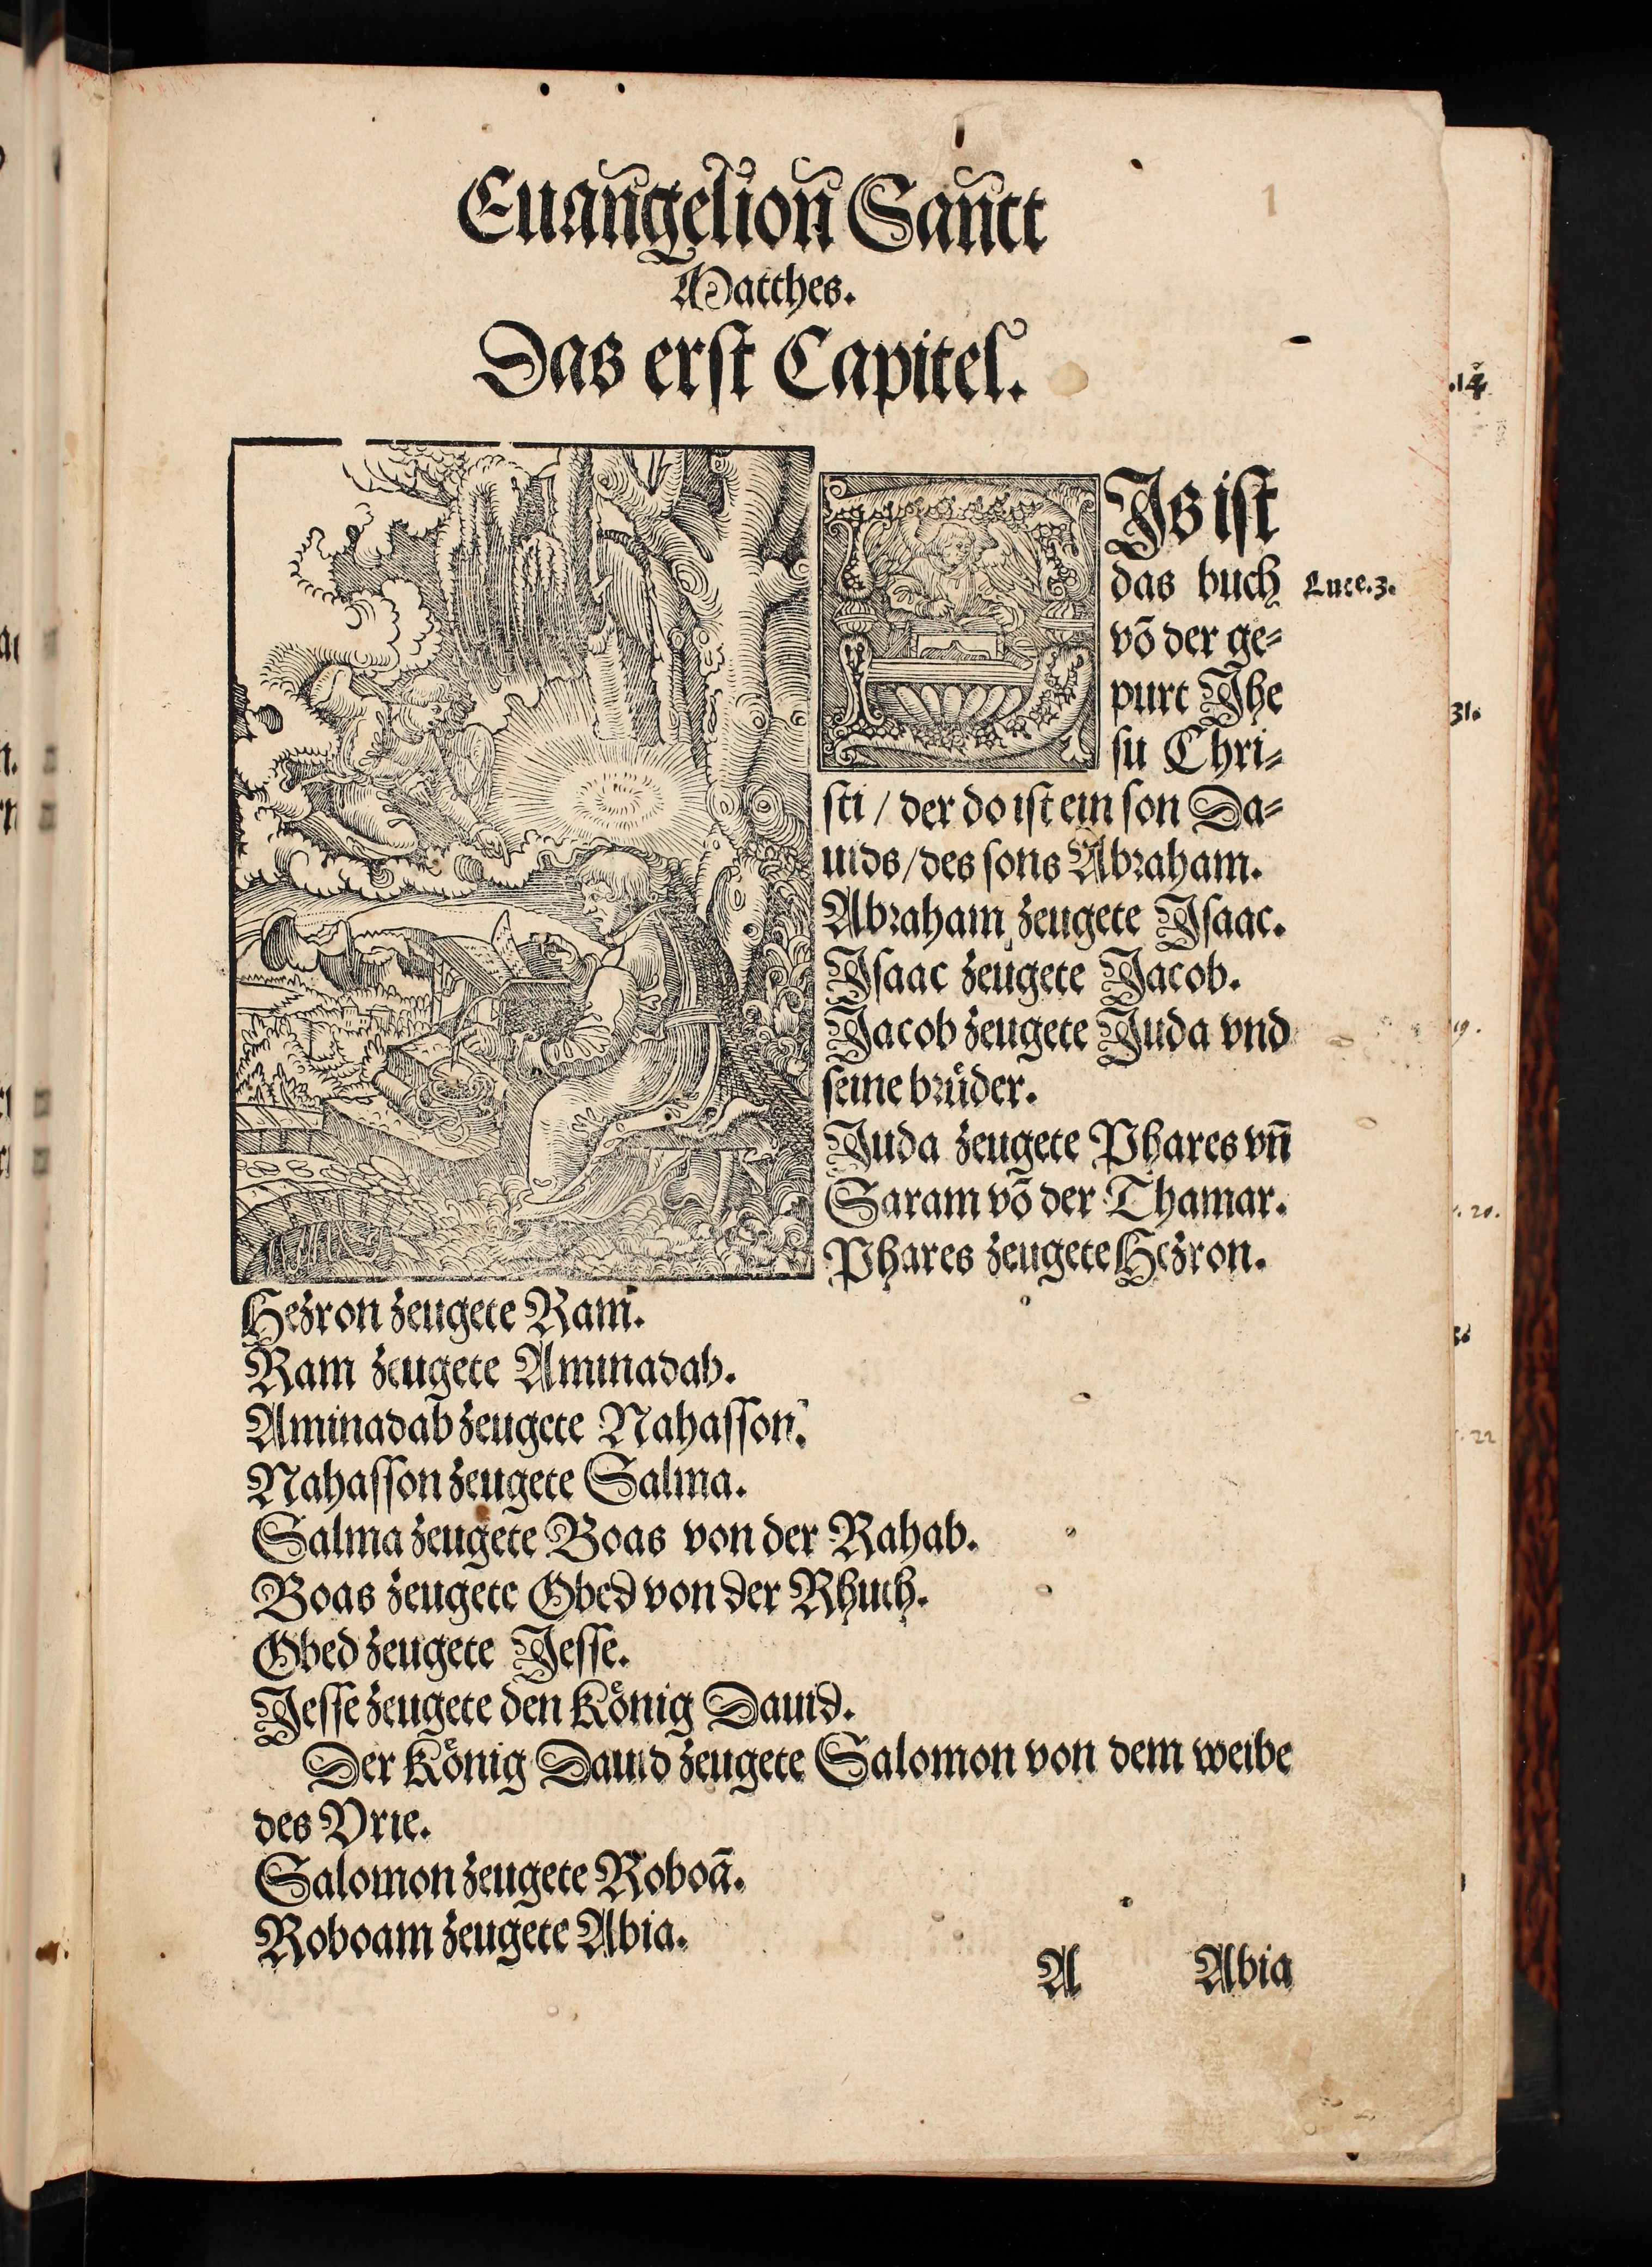 Euangelion Sanct
Matthes.
Das erst Capitel.
DJs ist
das buch
Luce.3.
võ der ge⸗
purt Jhe
su Chri⸗
sti / der do ist ein son Da⸗
uids / des sons Abraham.
Abraham zeugete Jsaac.
Jsaac zeugete Jacob.
Jacob zeugete Juda vnd
seine bruͤder.
Juda zeugete Phares vñ
Saram võ der Thamar.
Phares zeugete Hezron.
Hezron zeugete Ram.
Ram zeugete Aminadab.
Aminadab zeugete Nahasson.
Nahasson zeugete Salma.
Salma zeugete Boas von der Rahab.
Boas zeugete Obed von der Rhuth.
Obed zeugete Jesse.
Jesse zeugete den Koͤnig Dauid.
Der Koͤnig Dauid zeugete Salomon von dem weibe
des Vrie.
Salomon zeugete Roboã.
Roboam zeugete Abia.
A Abia
1
31.
19.
20.
22